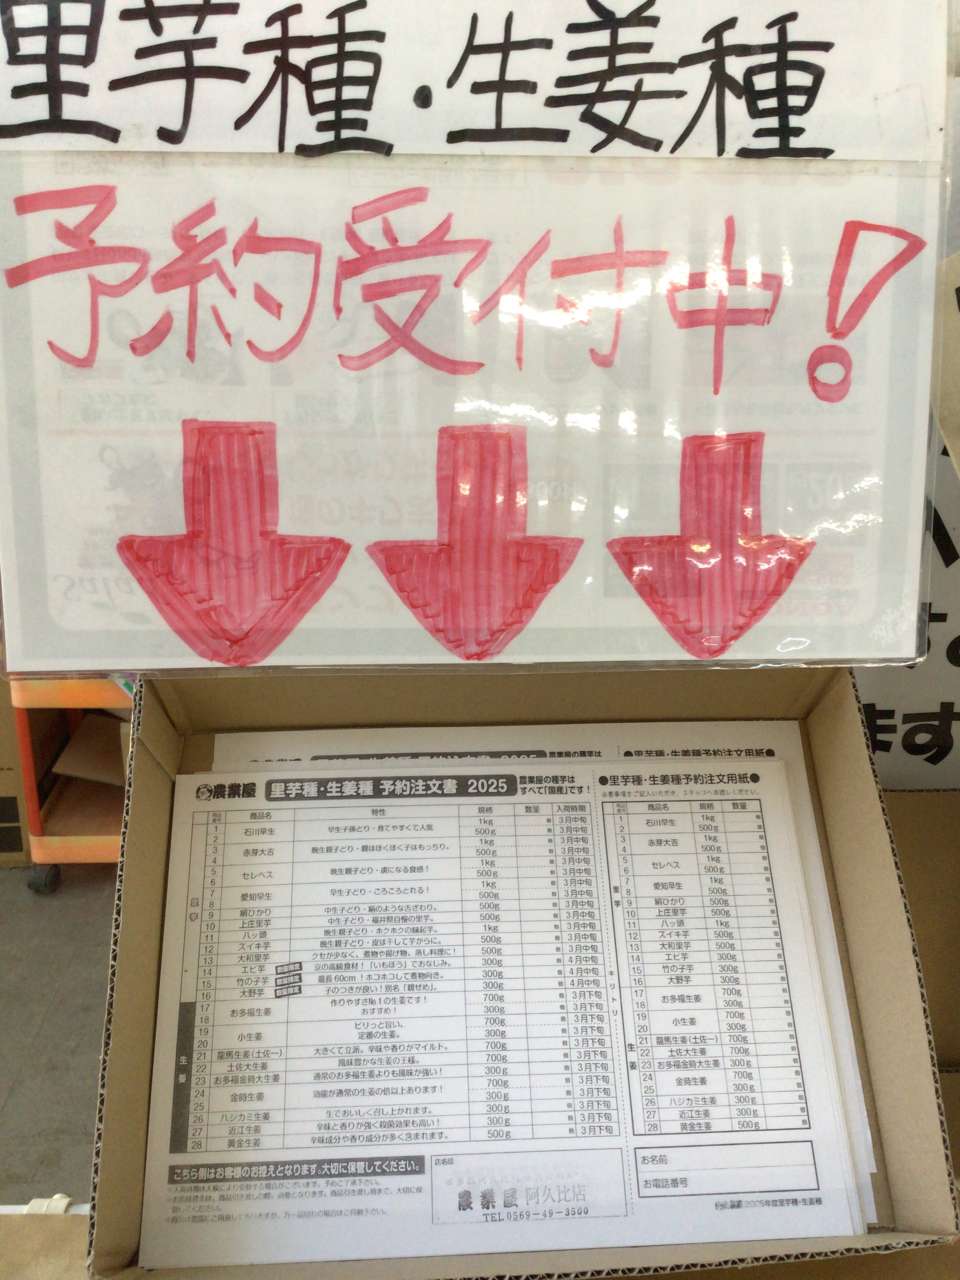 里芋種・生姜種
予約受付中!
農業屋 里芋種・生姜種 予約注文書 2025 農業屋の種芋は
すべて「国産」です!
商品名 特性 規格 数量 入荷時期
1 石川早生 早生子孫どり・育てやすくて人気 1kg 3月中旬
2 500g 3月中旬
3 赤芽大吉 晩生親子どり・親はほくほく子はもっちり。 1kg 3月中旬
4 500g 3月中旬
5 セレベス 晩生親子どり・虜になる食感! 1kg 3月中旬
6 500g 3月中旬
7 愛知早生 早生子どり・ころころとれる! 1kg 3月中旬
8 500g 3月中旬
9 絹ひかり 中生子どり・絹のような舌ざわり。 500g 3月中旬
10 上庄里芋 中生子どり・福井県自慢の里芋。 500g 3月中旬
11 八ッ頭 晩生親子どり・ホクホクの縁起芋。 1kg 3月中旬
12 スイキ芋 晩生親子どり・皮は干して芋がらに。 500g 3月中旬
13 大和里芋 クセが少なく、煮物や揚げ物、蒸し料理に! 500g
14 エビ芋 数量限定 京の高級食材!「いもぼう」でおなじみ。 300g
15 竹の子芋 数量限定 最長60cm!ホコホコして煮物向き。 300g
16 大野芋 数量限定 子のつきが良い!別名「親ぜめ」。 300g
生姜
17 お多福生姜 作りやすさNo.1の生姜です! 700g 3月下旬
18 おすすめ! 300g 3月下旬
19 小生姜 ピリっと旨い。 700g 3月下旬
20 定番の生姜。 300g 3月下旬
21 龍馬生姜(土佐一) 大きくて立派。辛味や香りがマイルド。 700g 3月下旬
22 土佐大生姜 風味豊かな生姜の王様。 700g 3月下旬
23 お多福金時大生姜 通常のお多福生姜よりも風味が強い! 300g 3月下旬
24 金時生姜 効能が通常の生姜の倍以上あります! 700g 3月下旬
25 300g 3月下旬
26 ハジカミ生姜 生でおいしく召し上がれます。 300g 3月下旬
27 近江生姜 辛味と香りが強く殺菌効果も高い! 300g 3月下旬
28 黄金生姜 辛味成分や香り成分が多く含まれます。 500g 3月下旬
こちら側はお客様のお控えとなります。大切に保管してください。
店名印
農業屋 阿久比店
TEL0569-49-3500
キリトリ
●里芋種・生姜種予約注文用紙●
必要事項をご記入いただき、スタッフへお渡しください。
商品名 規格 数量
里芋
1 石川早生 1kg
2 500g
3 赤芽大吉 1kg
4 500g
5 セレベス 1kg
6 500g
7 愛知早生 1kg
8 500g
9 絹ひかり 500g
10 上庄里芋 500g
11 八ッ頭 1kg
12 スイキ芋 500g
13 大和里芋 500g
14 エビ芋 300g
15 竹の子芋 300g
16 大野芋 300g
生姜
17 お多福生姜 700g
18 300g
19 小生姜 700g
20 300g
21 龍馬生姜(土佐一) 700g
22 土佐大生姜 700g
23 お多福金時大生姜 300g
24 金時生姜 700g
25 300g
26 ハジカミ生姜 300g
27 近江生姜 300g
28 黄金生姜 500g
お名前
お電話番号
2025年度里芋種・生姜種
ます